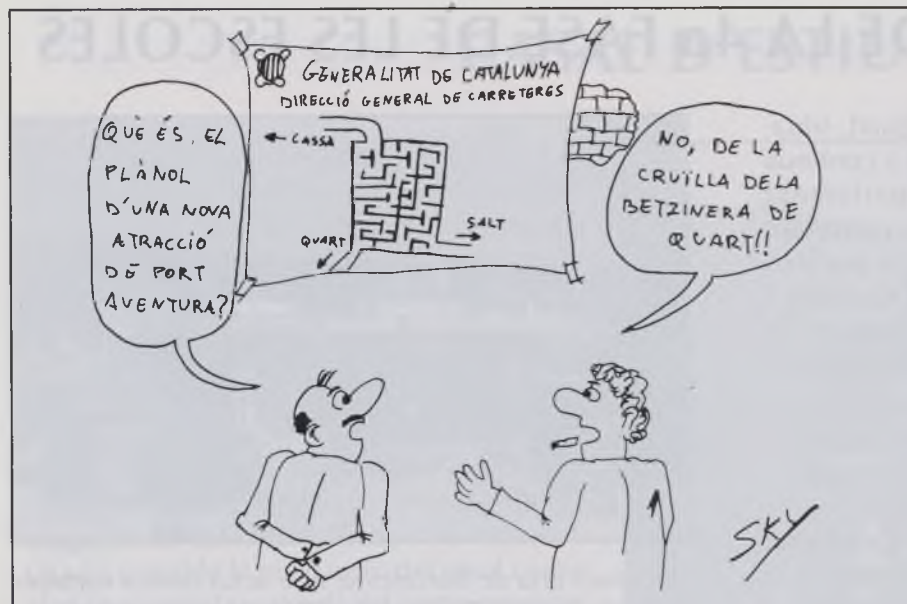 GENERALITAT DE CATALUNYA
DIRECCIÓ GENERAL DE CARRETERES
CASSA
SALT
QUART
QUÈ ÉS, EL
PLÀNOL
D'UNA NOVA
ATRACCIÓ
DE PORT
AVENTURA?
NO, DE LA
CRUÏLLA DELA
BETZINERA DE
QUART!!
SKY